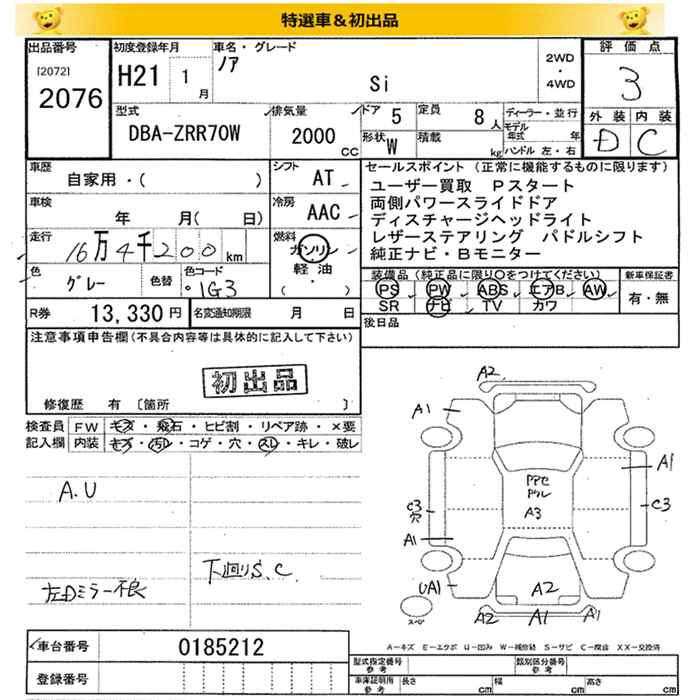 特選車＆初出品
出品番号
[2072]
2076
初度登録年月
H21 1月
車名・グレード
ノア
Si
2WD・4WD
評価点
3
外装 内装
D C
型式
DBA-ZRR70W
排気量
2000 CC
ドア 5
形状 W
定員 8人
積載 kg
ディーラー・並行
モデル年式 年
ハンドル 左・右
車歴
自家用・( )
シフト AT
車検 年 月( 日)
冷房 AAC
走行 16万4千200km
燃料 ガソリン
軽油・
( )
色 グレー 色替
色カラーコード 1G3
R券 13,330円
名変通知期限 月 日
セールスポイント (正常に機能するものに限ります)
ユーザー買取 Pスタート
両側パワースライドドア
ディスチャージヘッドライト
レザーステアリング パドルシフト
純正ナビ・Bモニター
装備品(純正品に限り○をつけてください)
PS PW ABS エアB AW
SR ナビ TV カワ
新車保証書
有・無
後日品
注意事項申告欄(不具合内容等は具体的に記入して下さい)
初出品
修復歴 有 [箇所 ]
検査員記入欄
FW キズ・飛石・ヒビ割・リペア跡・×要
内装 キズ・汚レ・コゲ・穴・スレ・キレ・破レ
A.U
下廻りS.C
左Dミラー不良
A2
A1
A1
C3
穴
C3
A3
A1
UA1
A2
A2
A1
A1
スペア
A-キズ E-エクボ U-凹み W-補修跡 S-サビ C-腐食 XX-交換済
車台番号 0185212
登録番号
型式指定番号 参考
類別区分番号 参考
車庫証明用 参考
長さ cm 幅 cm 高さ cm